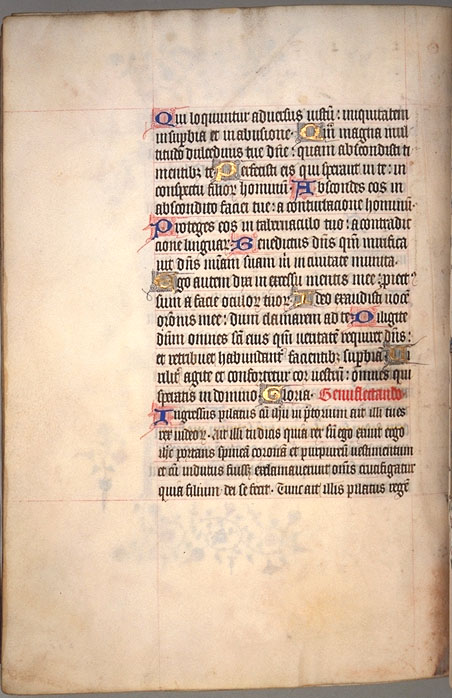 Qui loquuntur adversus iustū: iniquitatem
in supbia et in abusione. Qm̄ magna mul
titudo dulcedinis tue dn̄e: quam abscondisti ti
mentibz te. Perfecisti eis qui sperant in te: in
conspectu filiorᷣ hominū. Abscondes eos in
abscondito faciei tue: a conturbacione hominū.
Proteges eos in tabernaculo tuo: a contradic
cione linguarᷣ. Benedictus dn̄s qm̄ mirifica
uit dn̄s mīam suam m̄ in ciuitate munita.
Ego autem dixi in excessu mentis mee: proiect
sum a facie oculorᷣ tuorᷣ. Ideo exaudisti uocē
orōnis mee: dum clamarem ad te. Diligite
dn̄m omnes sc̄i eius qm̄ ueritatē requiret dn̄s:
et retribuet habundant̄ facientibz supbiā. Ui
rilit̄ agite et confortetur cor uestrū: omnes qui
speratis in domino. Gloria. Genuflectando
Ingressus pilatus cū ihu in p̄torium ait illi tu es
rex iudeorᷣ. ait illi tu dicis quia rex sū ego exiuit ergo
ihc portans spineā coronā et purpureū uestimentum
et cū indutus fuiss̄ exclamauerunt om̄s crucifigatur
quia filium dei se fecit. Tunc ait illis pilatus regē